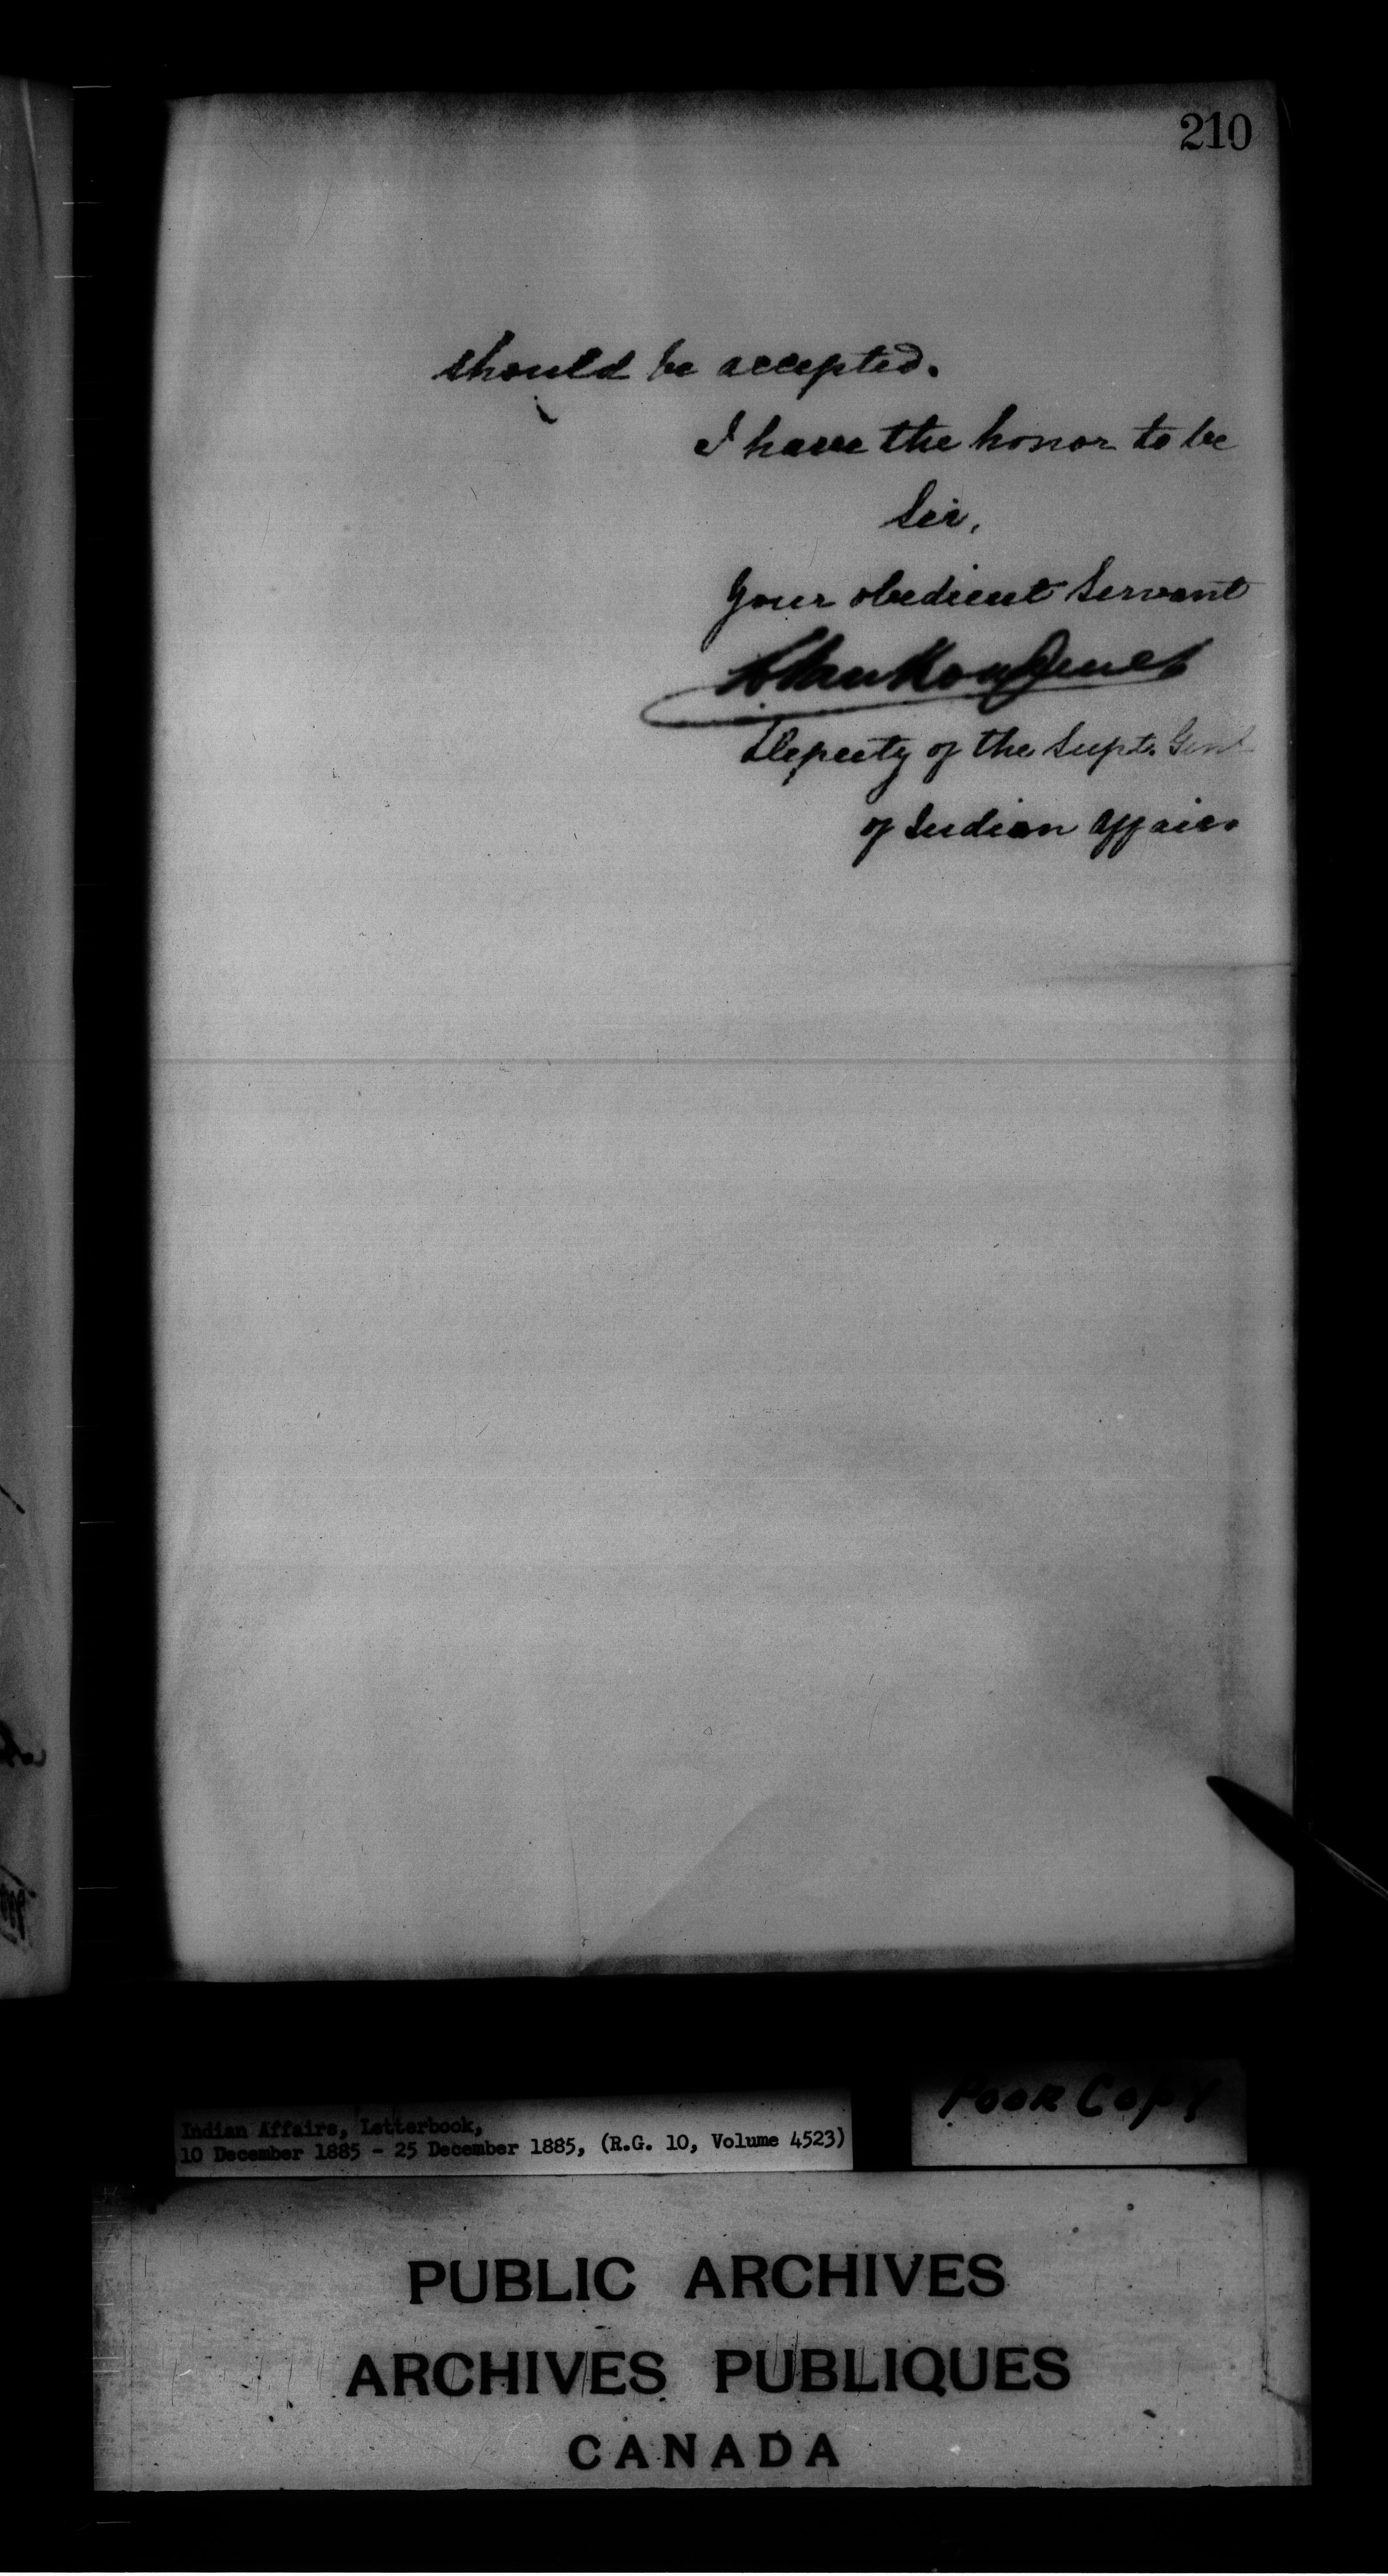 210
should be accepted.
I have the honor to be
Sir,
Your obedient Servant
Deputy of the Supt. Genl
of Indian Affairs
Poor Copy
Indian Affairs, Letterbook,
10 December 1885 - 25 December 1885, (R.G. 10, Volume 4523)
PUBLIC ARCHIVES
ARCHIVES PUBLIQUES
CANADA